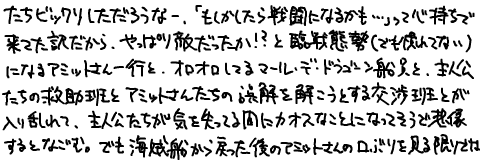 たちビックリしただろうなー、「もしかしたら戦闘になるかも…」って心持ちで
来てた訳だから、やっぱり敵だったか!?と臨戦態勢(でも慌れてない)
になるアミットさん一行と、オロオロしてるマール・デ・ドラゴーン船員と、主人公
たちの救助班とアミットさんたちの誤解を解こうとする交渉班とが
入り乱れて、主人公たちが気を失ってる間にカオスなことになってそうで想像
するとなごむ。でも海賊船から戻った後のアミットさんの口ぶりを見る限りでは